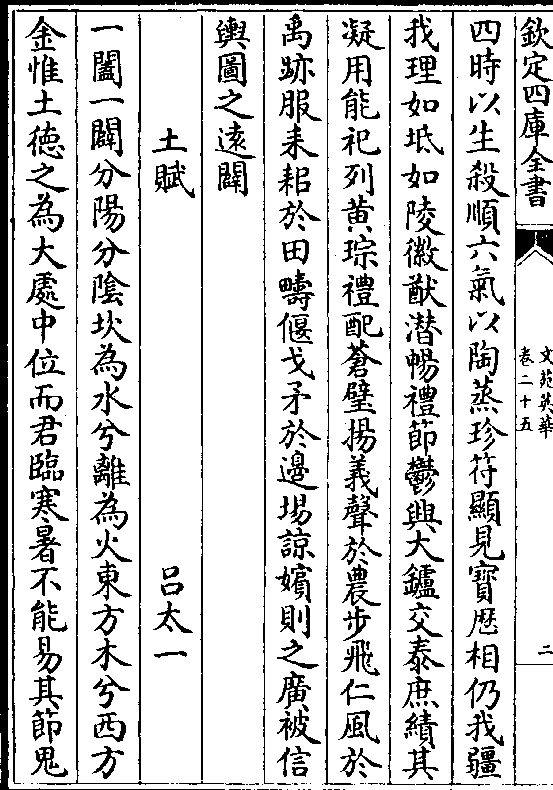 欽定四庫全書
文苑英華
卷二十五
二
四時以生殺順六氣以陶蒸珍符顯見寳厯相仍我疆
我理如坻如陵徽猷潜暢禮節鬱興大鑪交泰庶績其
凝用能祀列黄琮禮配蒼璧揚義聲於農步飛仁風於
禹跡服耒耜於田疇偃戈矛於邊埸諒嬪則之廣被信
輿圖之遠闢
土賦
吕太一
一闔一闢分陽分隂坎為水兮離為火東方木兮西方
金惟土徳之為大處中位而君臨寒暑不能易其節鬼